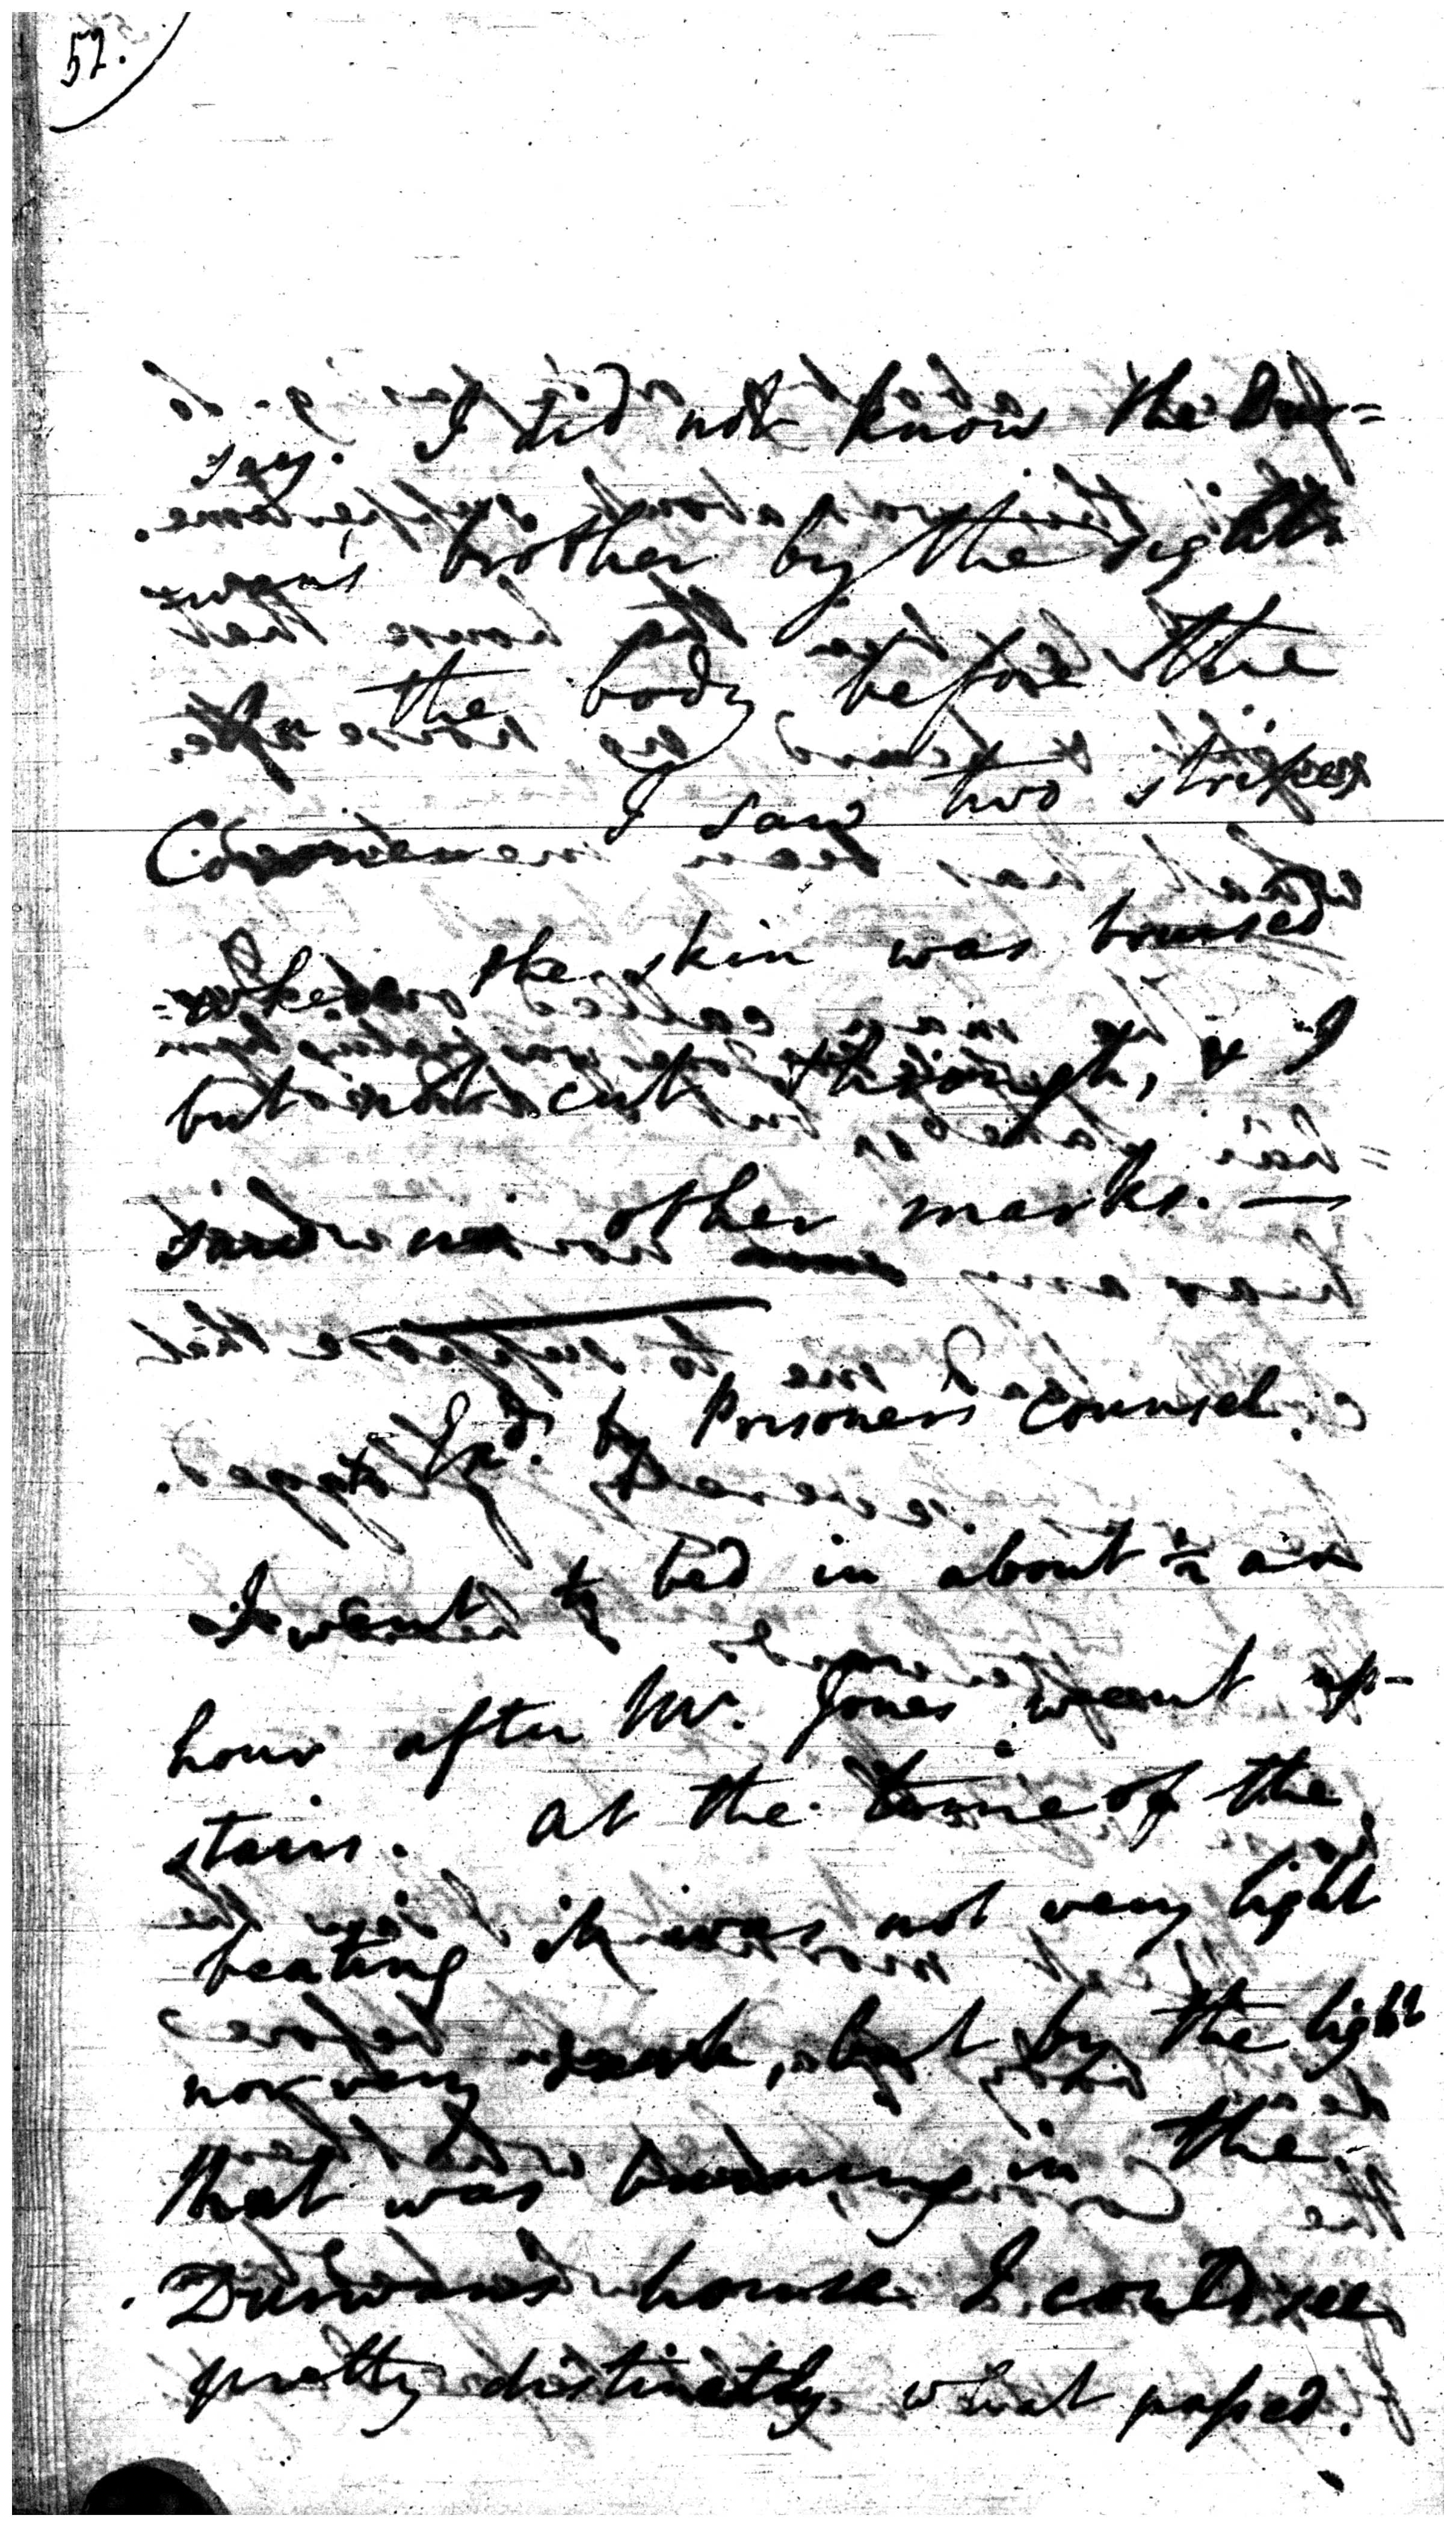 52.
say. I did not know the Dur=
=wan's brother by the sight
of the body before the
Coroner I saw two stripes
where the skin was bruised
but not cut through, & I
saw no other marks. —
Exd. by Prisoners Counsel.
I went to bed in about ½ an
hour after Mr. Jones went up-
stairs. at the time of the
beating it was not very light
nor very dark, but by the light
that was burning in the
Durwan's house I could see
pretty distinctly what passed.